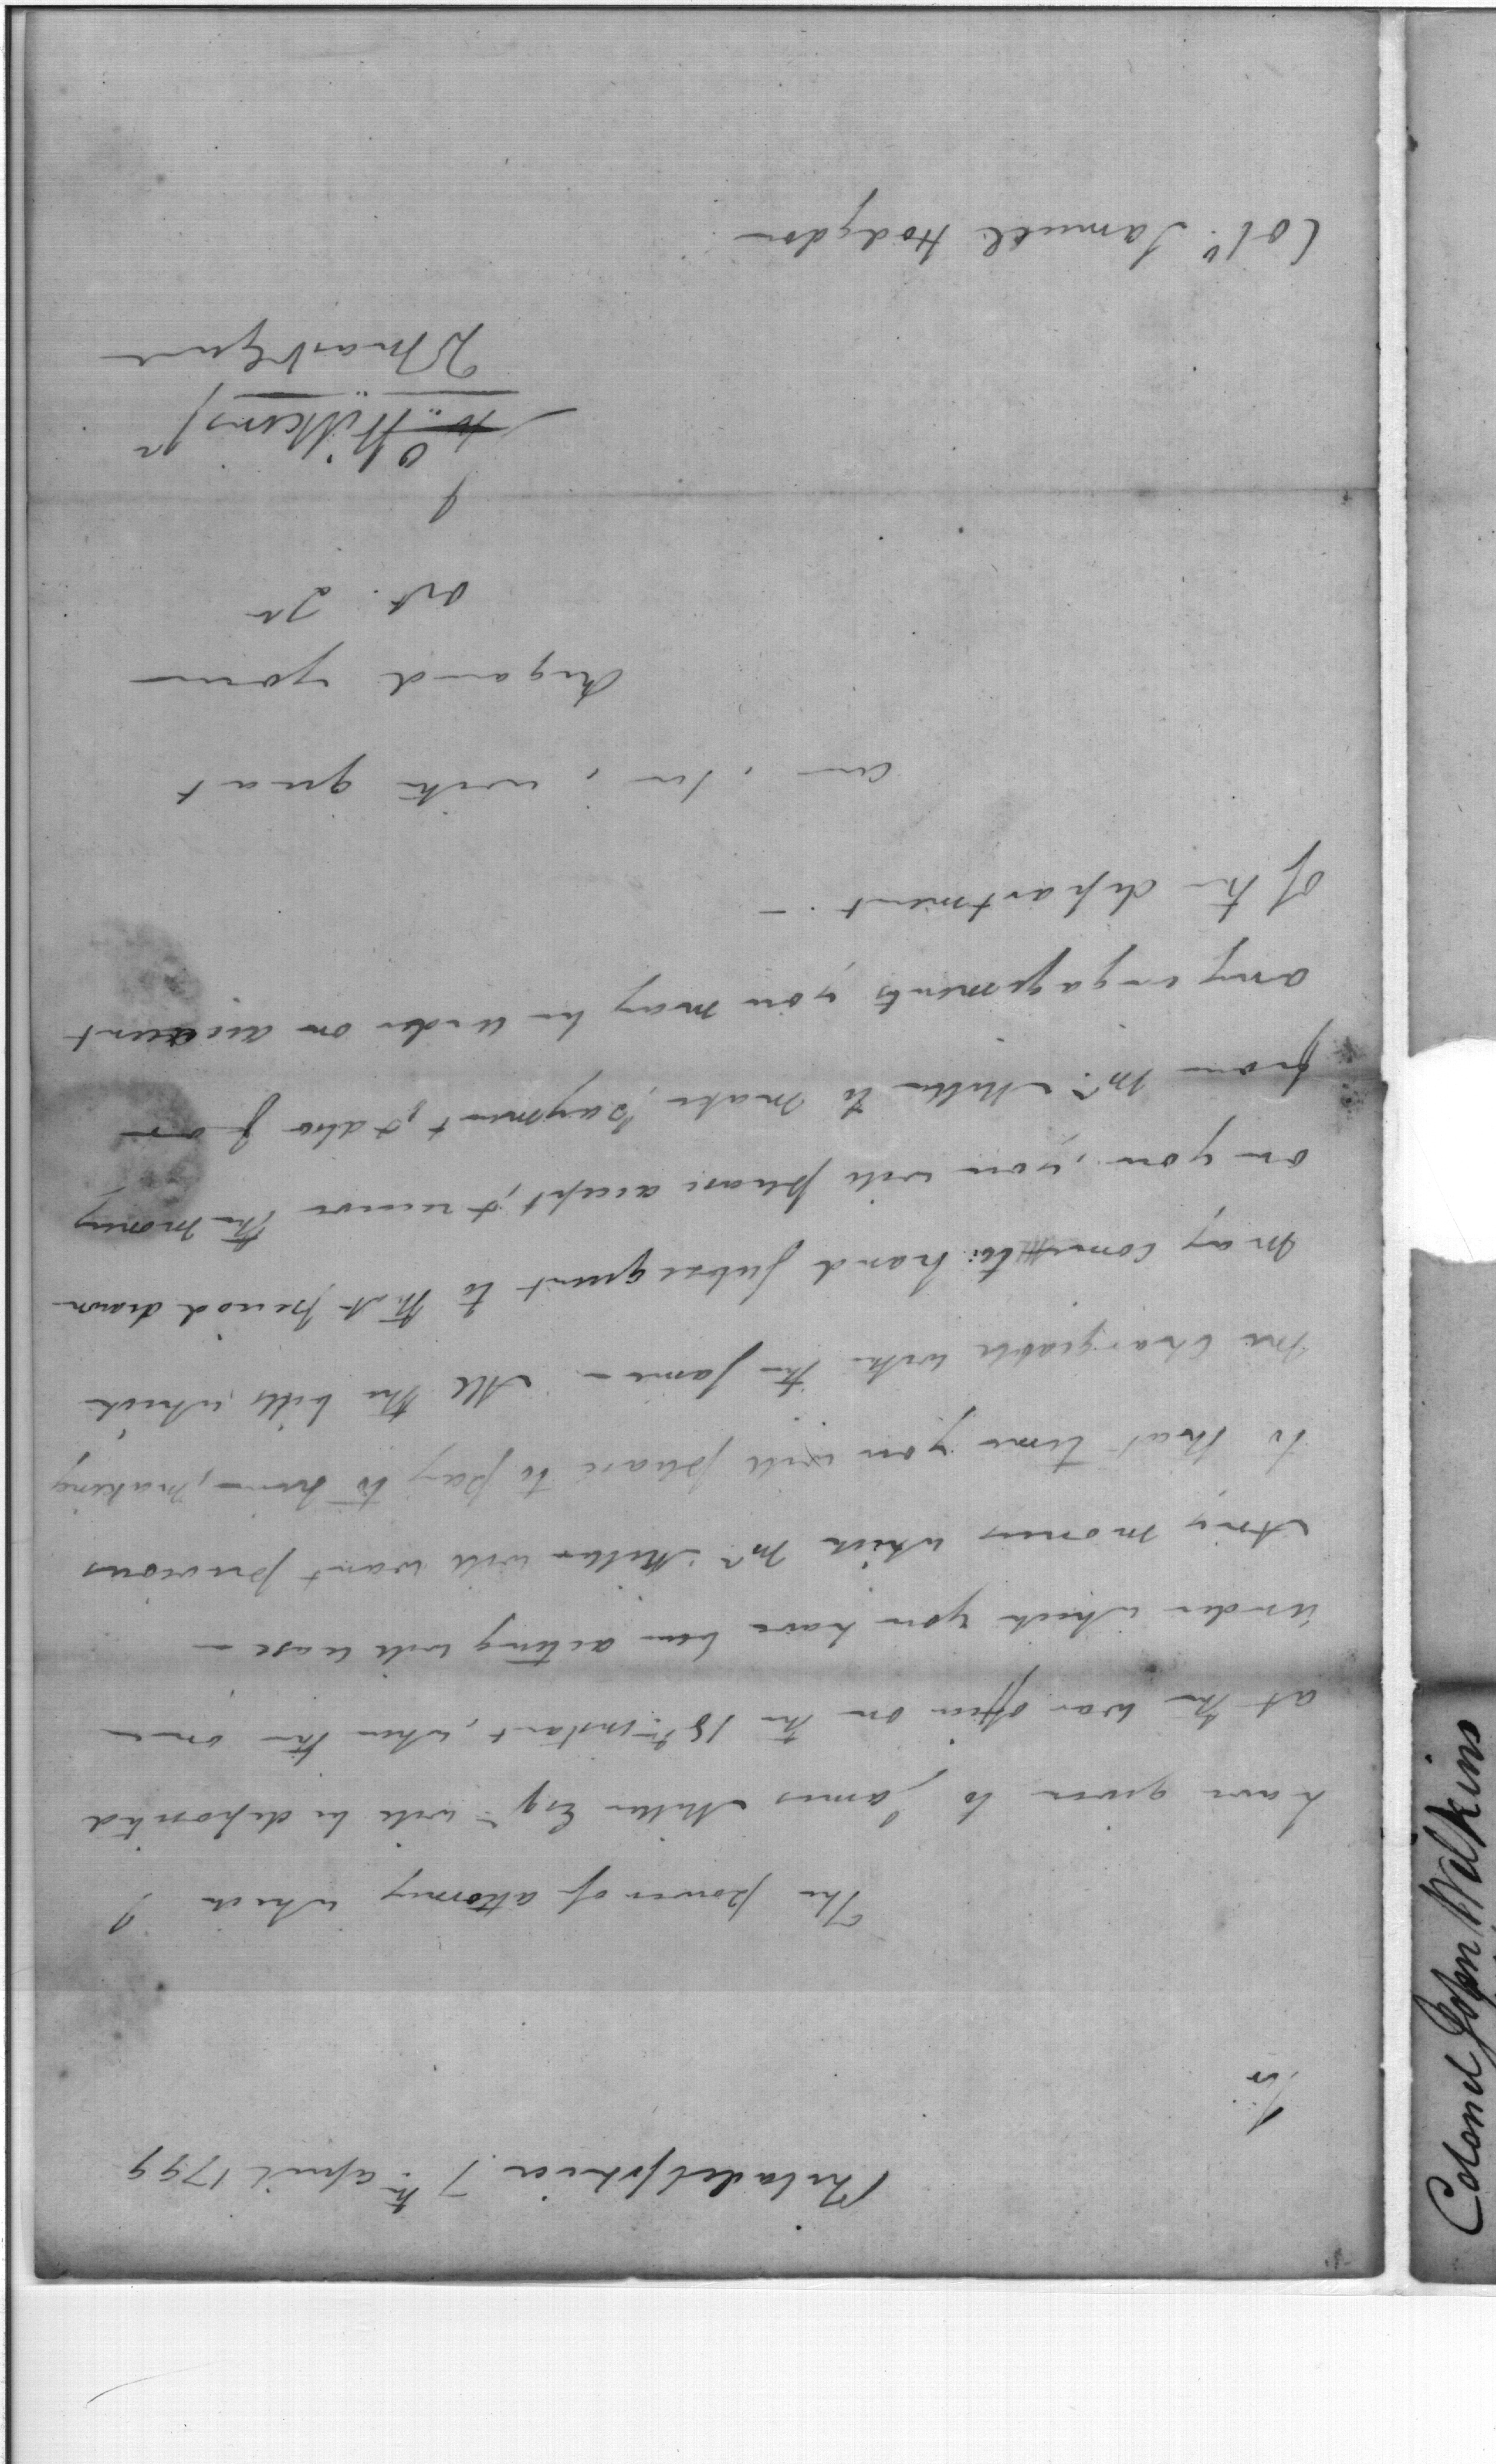 Philadelphia 7th april 1799
Sir
The power of attorney which I
have given to James Miller Esqr will be deposited
at the War office on the 18th instant, when the one
under which you have been acting will cease —
Any monies which Mr Miller will want previous
to that time you will please to pay to him, making
me chargeable with the same — All the bills which
may come to hand subsequent to that period drawn
on you, you will please accept, & receive the money
from Mr Miller to make payment, & also for
any engagements you may be under on account
of the department. —
am, Sir, with great
regard your
obt. Sr
J
Wilkins Jr
QrMastGenl
Colo. Samuel Hodgdon
Colonel John Wilkins